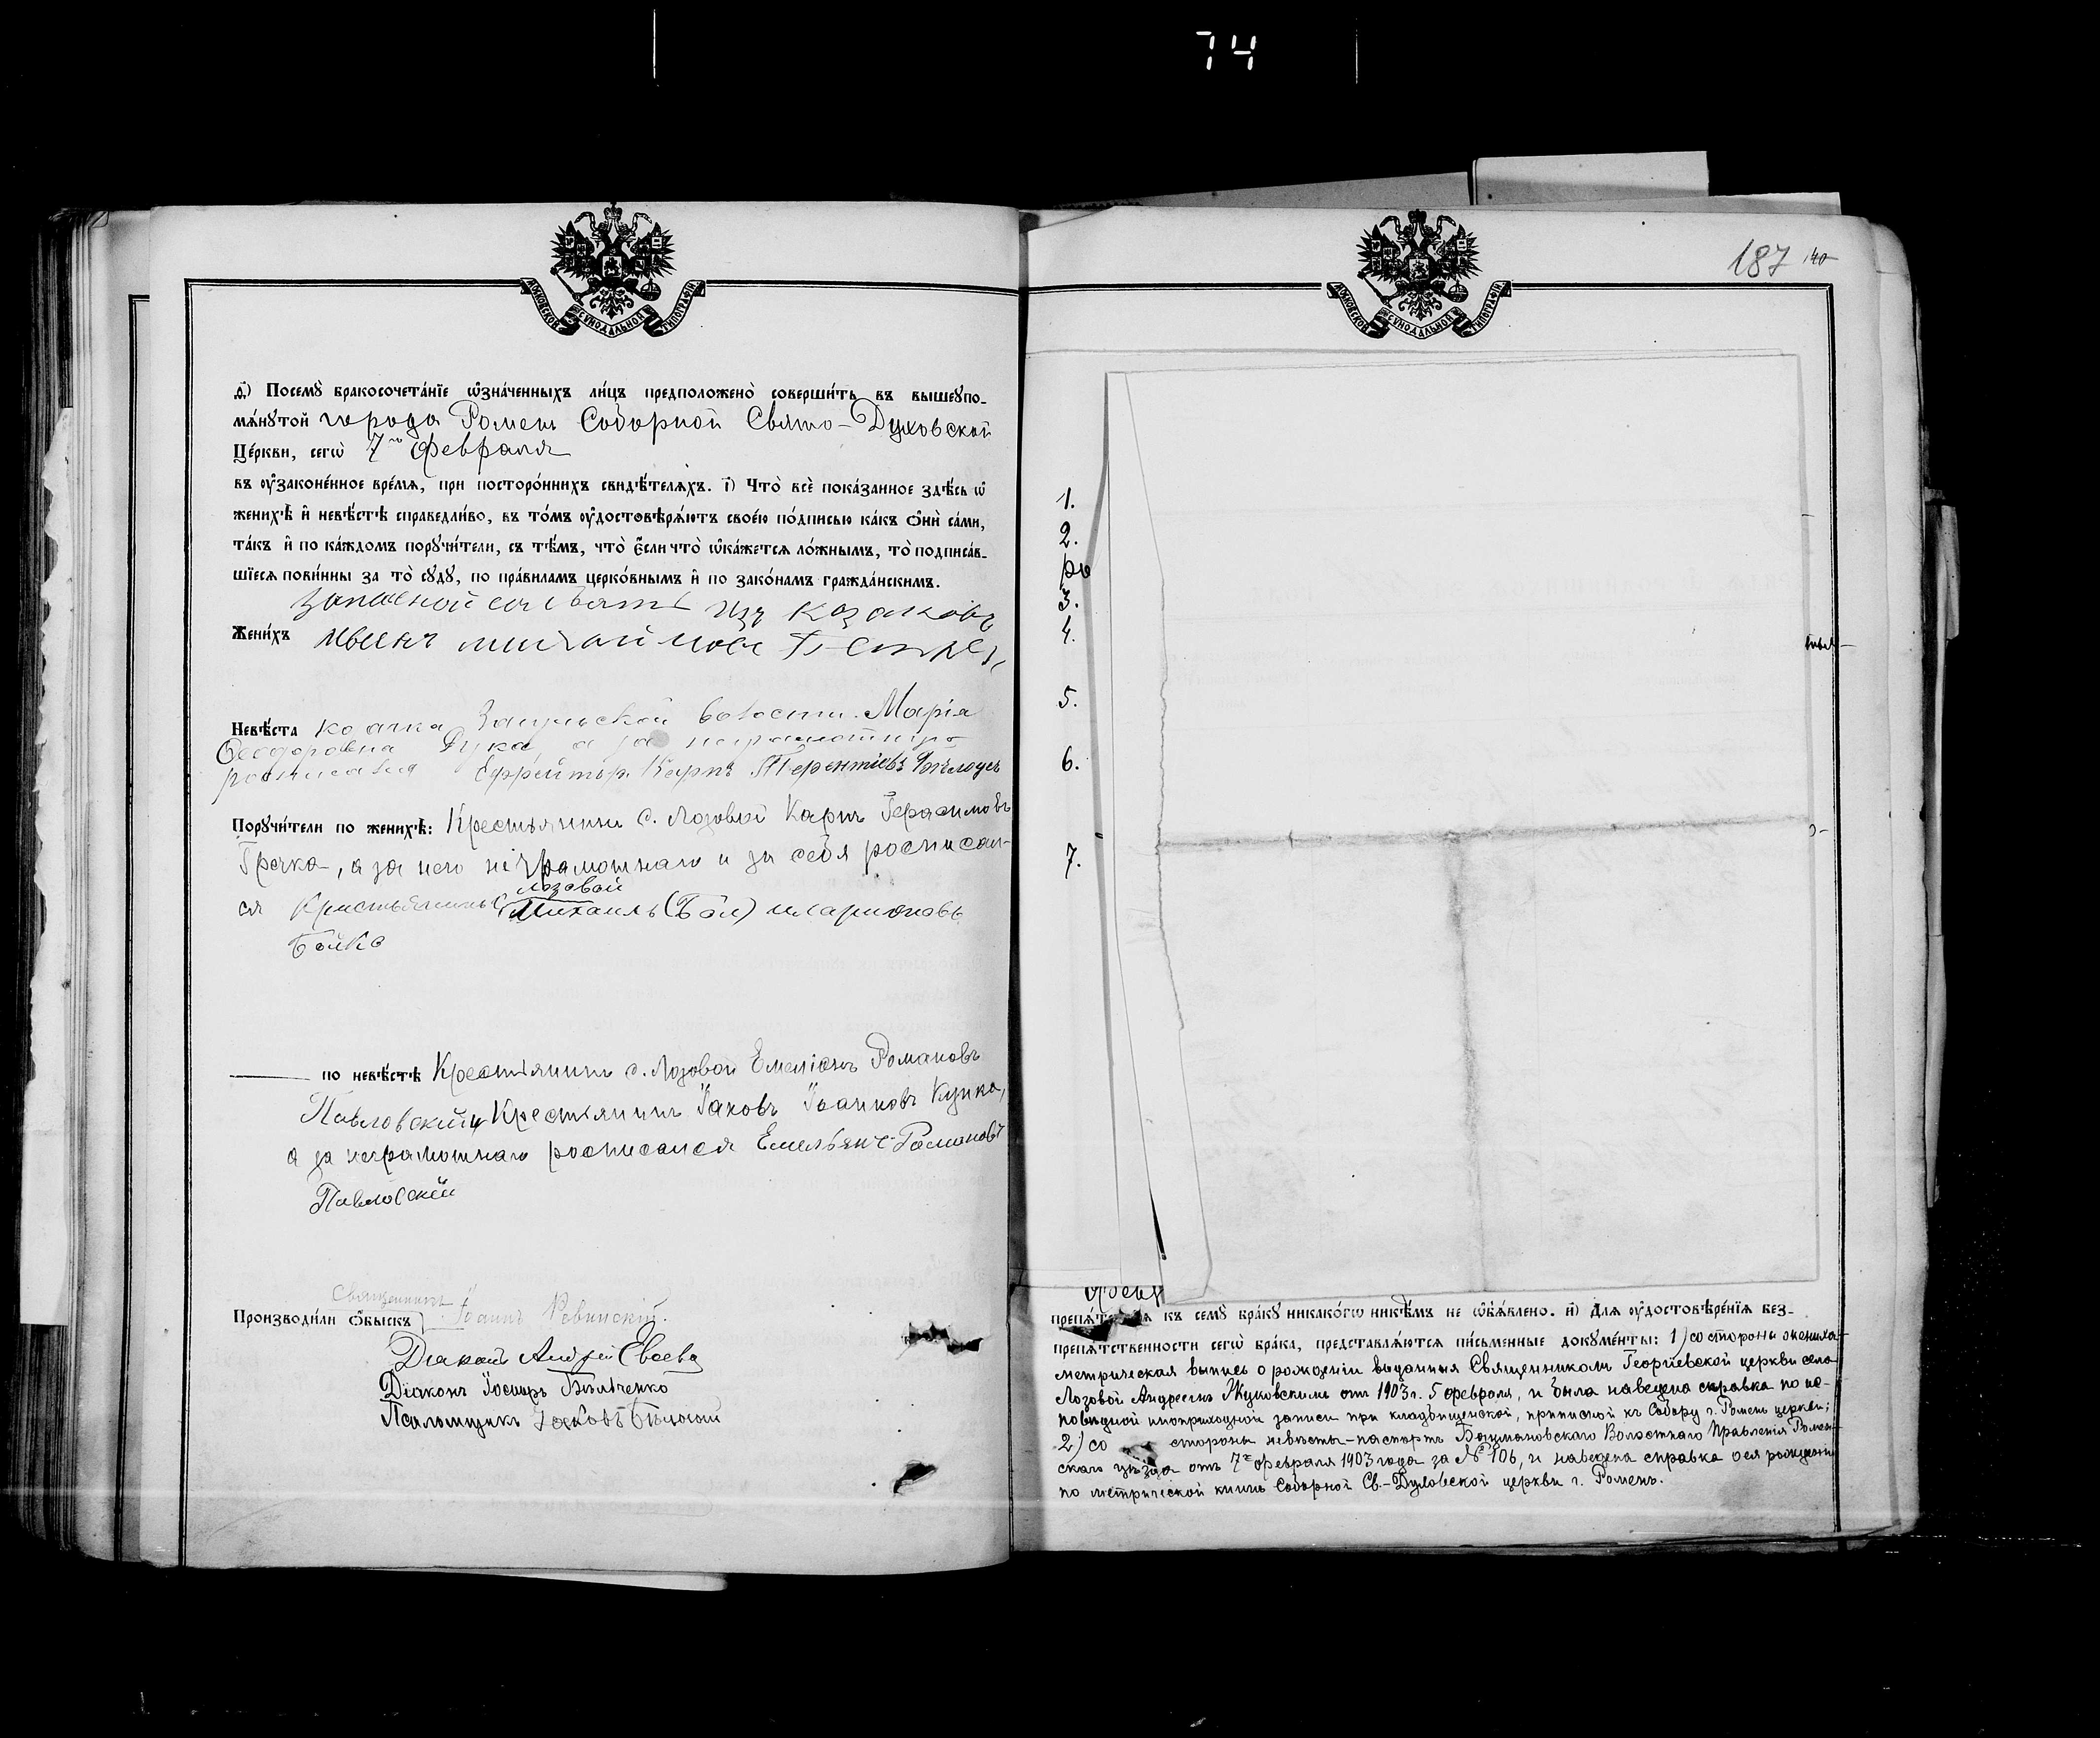 74
МОСКОВСКОЙ СУНОДАЛЬНОЙ ТИПОГРАФІИ
д҃) Посемꙋ̀ бракосочета́нїе ѡ҆зна́ченныхъ ли́цъ предположено̀ соверши́ть въ вышеꙋпо-
мѧ́нꙋтой города Роменъ Соборной Свято-Духовской
Це́ркви, сегѡ̀ 7го февраля
въ ᲂу҆законе́нное вре́мѧ, при посторо́ннихъ свидѣ́телѧхъ. і҃) Что̀ всѐ пока́занное здѣ́сь ѡ҆
женихѣ̀ и҆ невѣ́стѣ справедли́во, въ то́мъ ᲂу҆достовѣрѧ́ютъ свое́ю по́дписью ка́къ ѻ҆нѝ са́ми,
та́къ и҆ по ка́ждомъ порꙋчи́тели, съ тѣ́мъ, что̀ є҆́сли что̀ ѡ҆ка́жетсѧ ло́жнымъ, то̀ подписа́в-
шїесѧ пови́нны за то̀ сꙋдꙋ̀, по пра́виламъ церко́внымъ и҆ по зако́намъ гражда́нскимъ.
изъ казаковъ
Жени́хъ
Невѣ́ста козачка Засульской волости Марія
Ѳеодоровна а за неграмотную
росписался Ефрейторъ Карпъ Терентіевъ
Порꙋчи́тели по женихѣ̀: Крестьянинъ с. Лозовой Карпъ Герасимовъ
Гречка, а за него неграмотнаго и за себя росписал-
ся Крестьянинъ с. лозовой Михаилъ (Бой) иларионовъ
Бойко
по невѣ́стѣ Крестьянинъ с. Лозовой Емеліанъ Романовъ
Павловскій и Крестьянинъ Іаковъ Іоанновъ Кузка,
а за неграмотнаго росписался Емельянъ Романовъ
Павловскій
Священникъ
Производи́ли ѻ҆́быскъ Іоаннъ Ревинскій.
Діаконъ Андрей Евсевъ
Діаконъ Іосифъ Бѣльченко
Псаломщикъ Іаковъ
187 140
МОСКОВСКОЙ СУНОДАЛЬНОЙ ТИПОГРАФІИ
1.
2.
ро
3.
4.
5.
6.
7.
къ семꙋ̀ бра́кꙋ никако́гѡ никѣ́мъ не ѡ҆б̾ѧ́влено. и҃) Длѧ ᲂу҆достовѣре́нїѧ без-
препѧ́тственности сегѡ̀ бра́ка, представлѧ́ютсѧ пи́сьменные докꙋме́нты: 1) со стороны жениха-
метрическая выпись о рожденіи выданная Священникомъ Георгіевской церкви села
Лозовой Андреемъ Жуковскимъ отъ 1903 г. 5 февраля, и была наведена справка по ис-
повѣдной иноприходной записи при кладбищенской, приписной къ Собору г. Роменъ церкви;
2) со стороны невѣсты-паспортъ Волостнаго Правленія Ромен-
скаго уѣзда отъ 7го февраля 1903 года за № 106, и наведена справка о ея рожденіи
по метрической книгѣ Соборной Св.-Духовской церкви г. Роменъ.